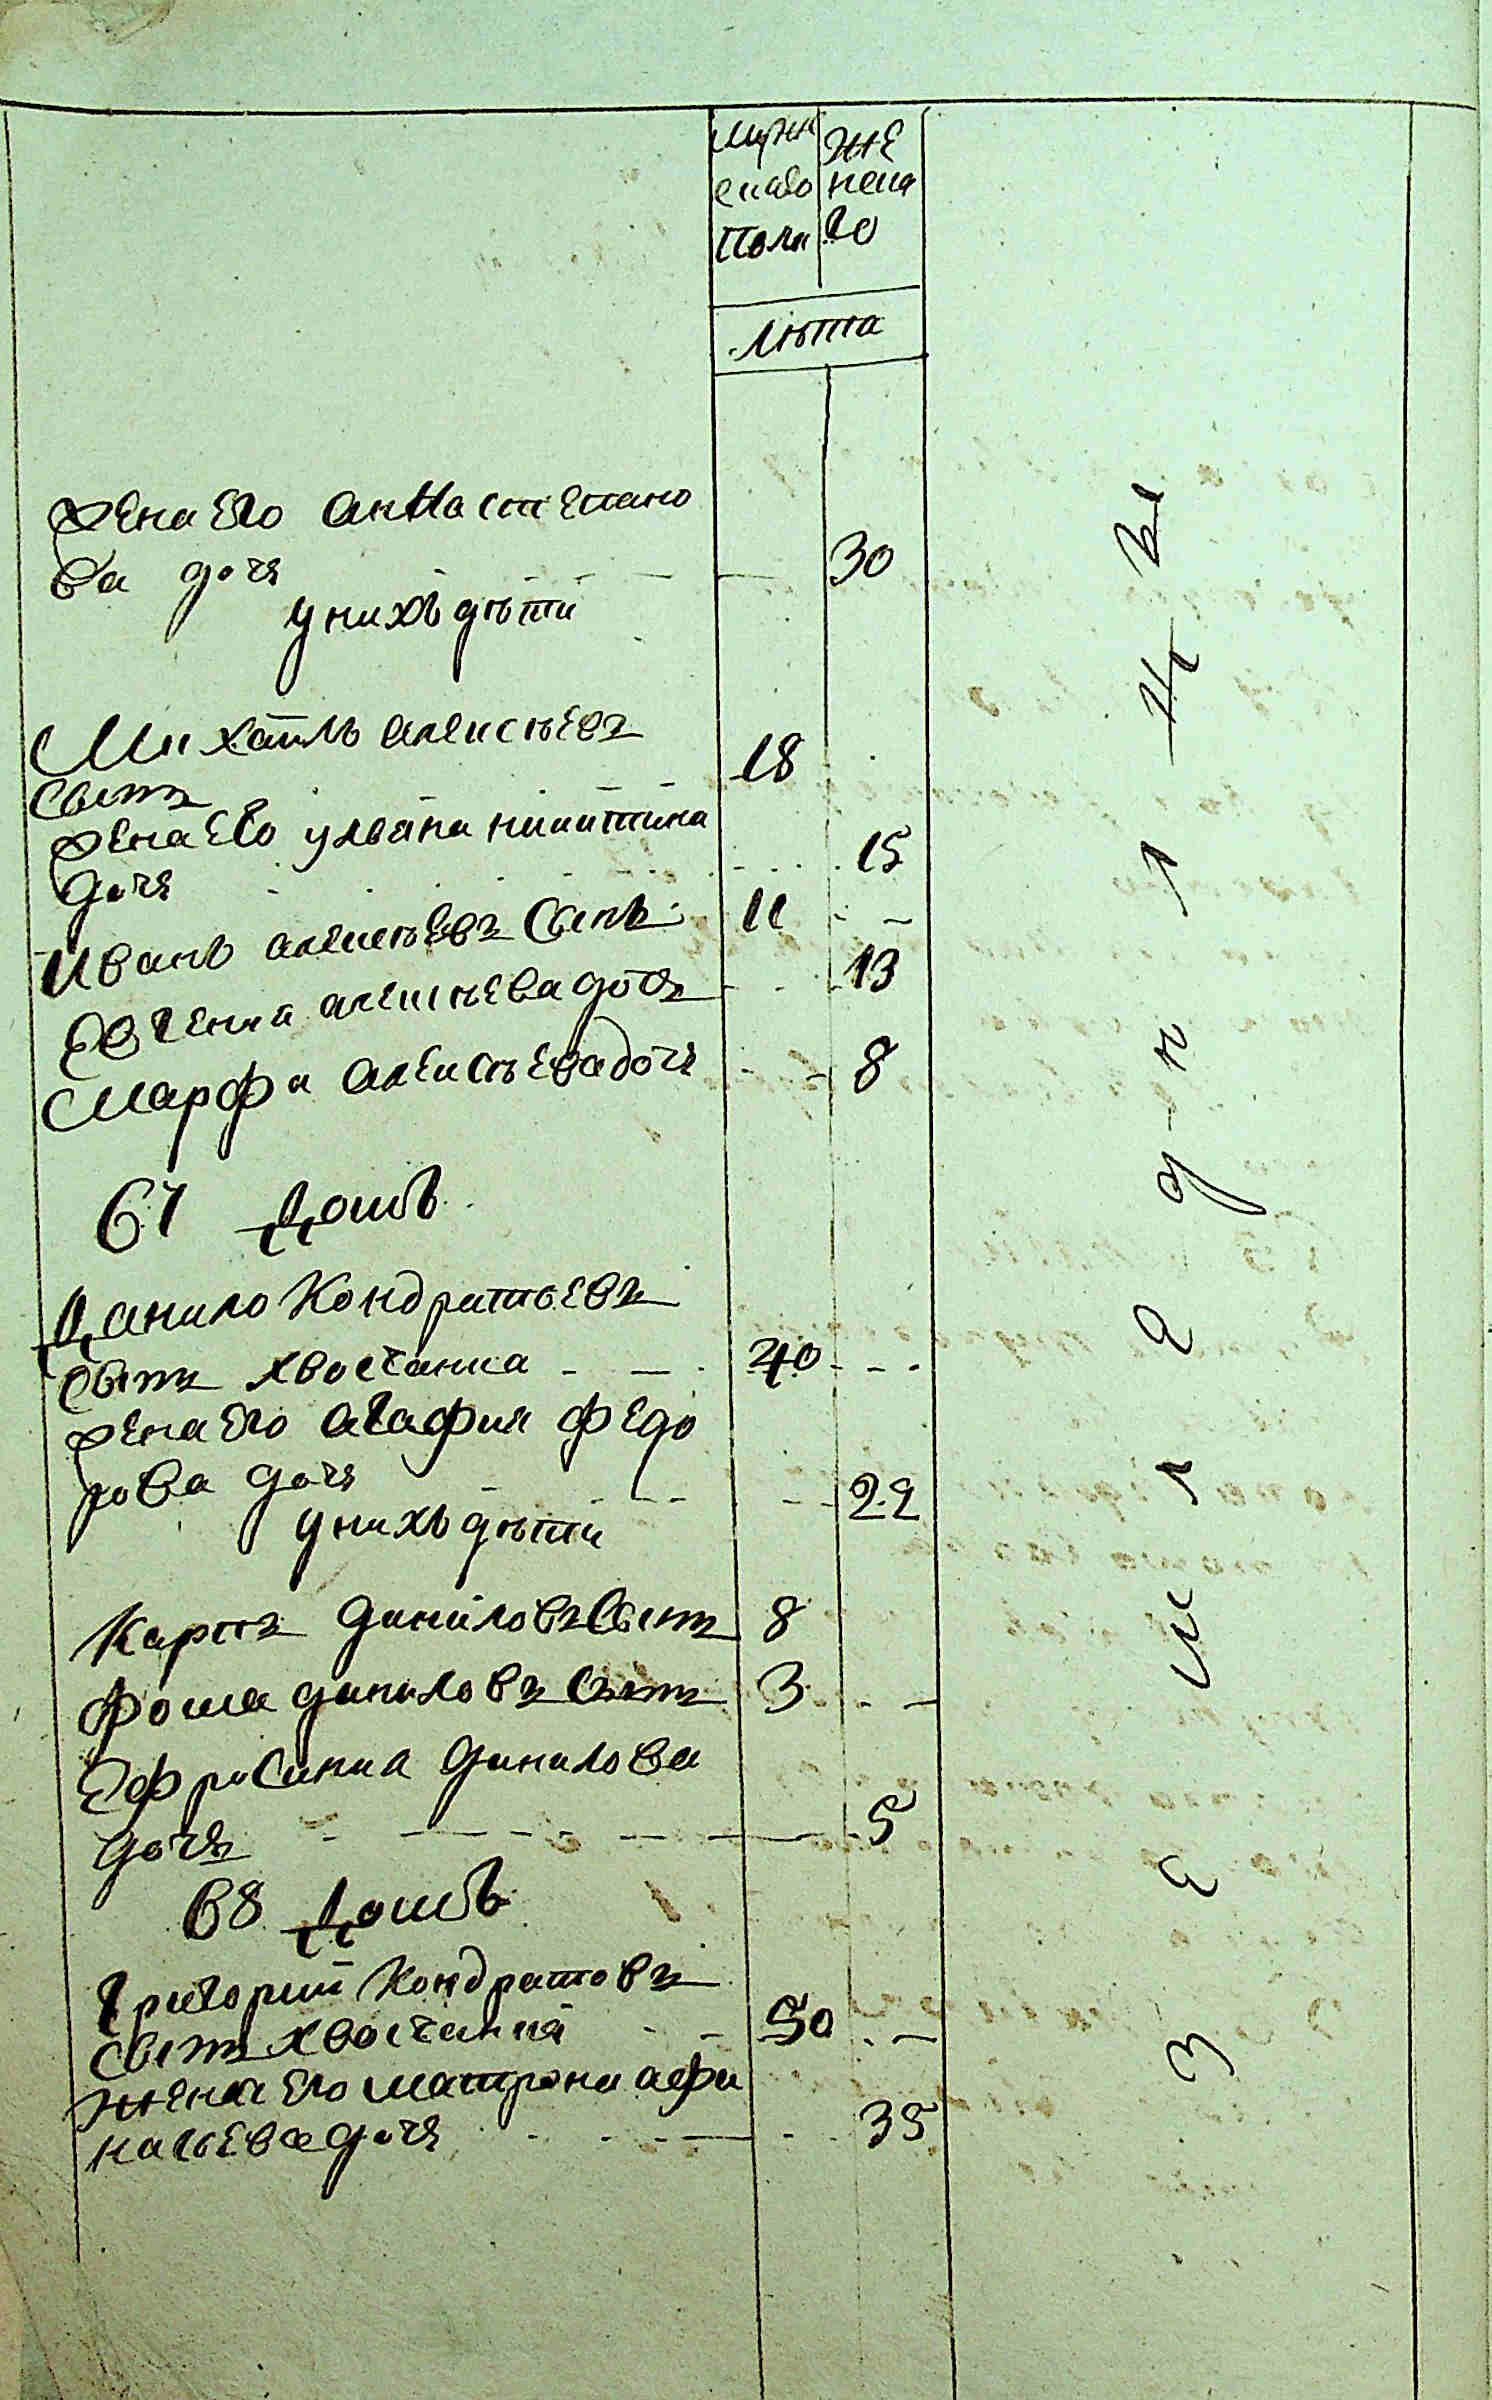 муж же
скаго нска
пола го
лѣта
жена его анна степано
ва дочя 30
у нихъ дѣти
Михайлъ алексѣевъ
сынъ 18
жена его ульяна никитина
дочя 15
Иванъ алексѣевъ сынъ 11
Евгения алексѣева дочя 13
Марфа алексѣева дочя 8
67 Домъ
Данило Кондратьевъ
сынъ хвостанка 40
жена его агафия федо
рова дочя 22
у нихъ дѣти
Карпъ даниловъ сынъ 8
фома даниловъ сынъ 3
Ефросиния данилова
дочя 5
68 Домъ
Григорий Кондратовъ
сынъ хвостанка 50
жена его матрона афа
насьева дочя 35